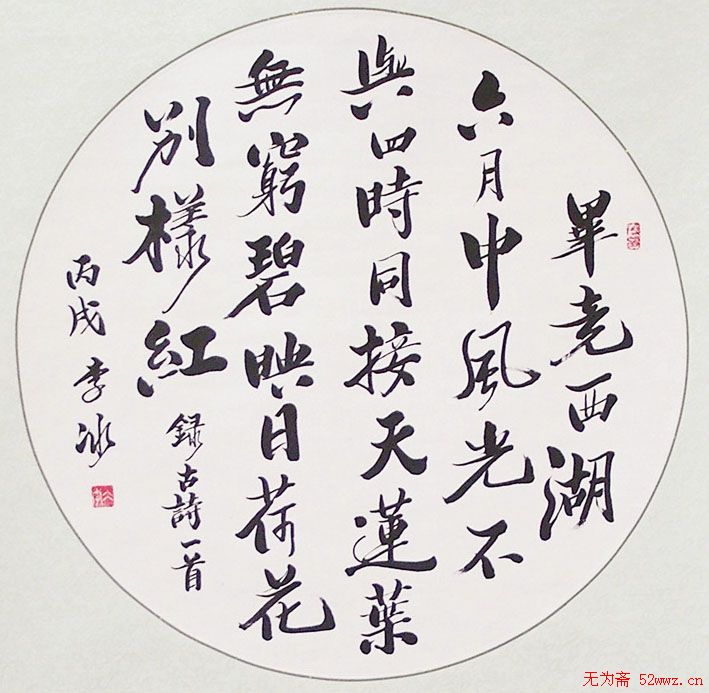 畢竟西湖
六月中風光不
與四時同接天蓮葉
無窮碧映日荷花
別樣紅
錄古詩一首
丙戌李冰
无为斋 52wwz.cn